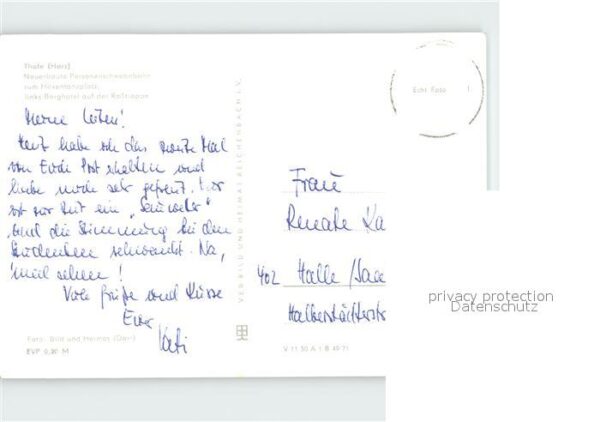 Thale (Harz)
Neuerbaute Personenschwebebahn
zum Hexentanzplatz,
links Berghotel auf der Roßtrappe
Meine Lieben!
Heut habe ich das zweite Mal
von Euch Post erhalten und
habe mich sehr gefreut. Hier
ist zur Zeit ein „Sauwetter"
und die Stimmung bei den
Studenten schwankt. Na,
mal sehen!
Viele Grüße und Küsse
Eure
Kati
Foto: Bild und Heimat (Darr)
EVP 0,20 M
VEB BILD UND HEIMAT REICHENBACH I. V.
Echt Foto
Frau
Renate Ka
402 Halle/Saa
Halberstädterstr
V 11 50 A 1 B 49/71
privacy protection
Datenschutz